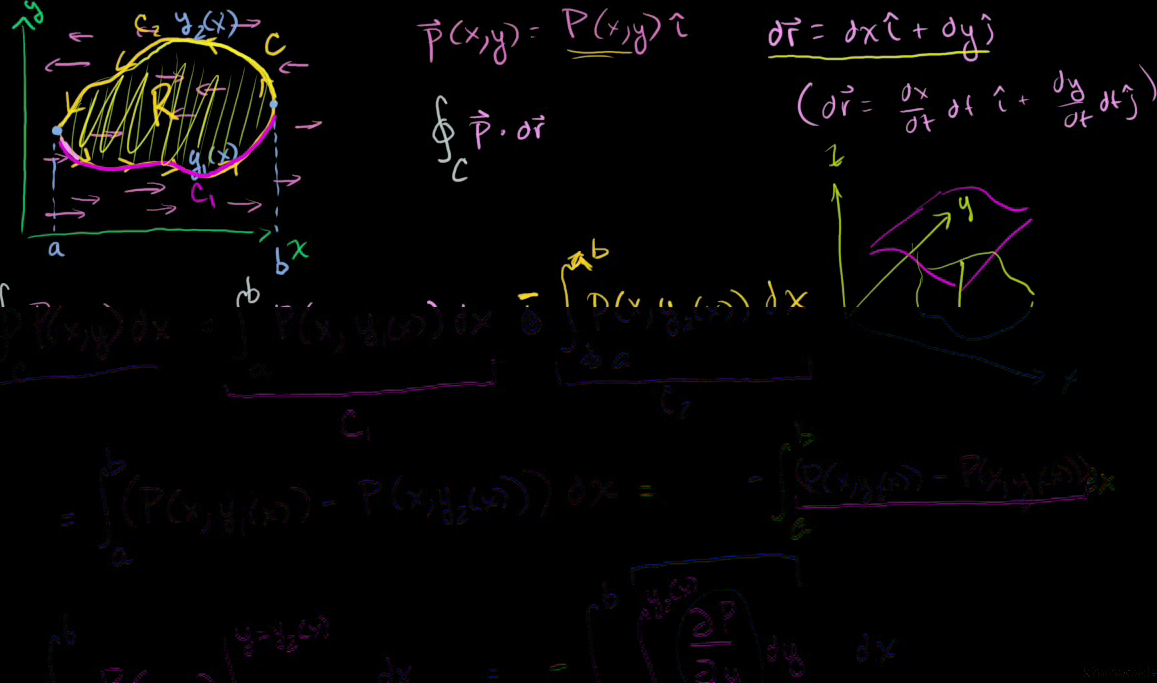 y
C₂ y₂(x)
C
R
y₁(x)
C₁
a b x
P⃗(x,y) = P(x,y) î
dr⃗ = dx î + dy ĵ
(dr⃗ = dx/dt dt î + dy/dt dt ĵ)
∮_C P⃗ · dr⃗
z
y
∮_C P(x,y) dx = ∫_a^b P(x, y₁(x)) dx - ∫_a^b P(x, y₂(x)) dx
C₁ C₂
= ∫_a^b (P(x, y₁(x)) - P(x, y₂(x))) dx = - ∫_a^b (P(x, y₂(x)) - P(x, y₁(x))) dx
b y=y₂(x) dx = = ∫^b ∫^{y₂(x)} ∂P/∂y dy dx